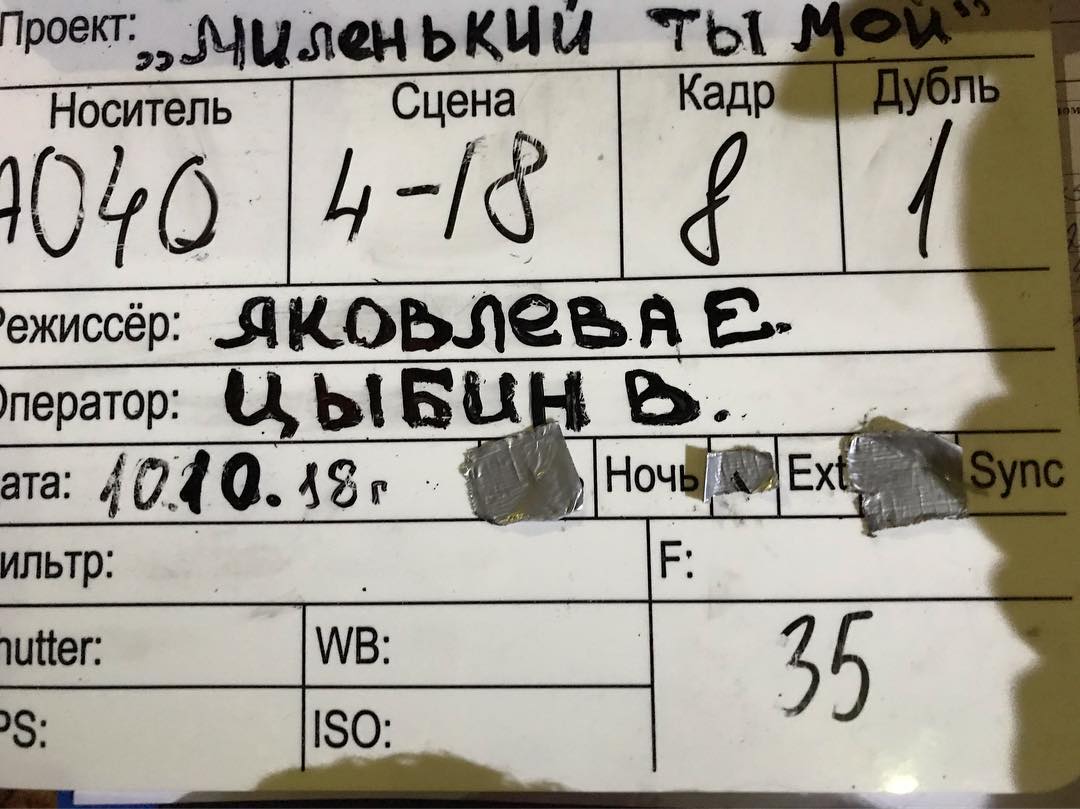 Проект: „Миленький ты мой"
Носитель Сцена Кадр Дубль
А040 4-18 8 1
Режиссёр: Яковлева Е.
Оператор: Цыбин В.
ата: 10.10.18г Ночь Ext Sync
ильтр: F:
hutter: WB: 35
PS: ISO: